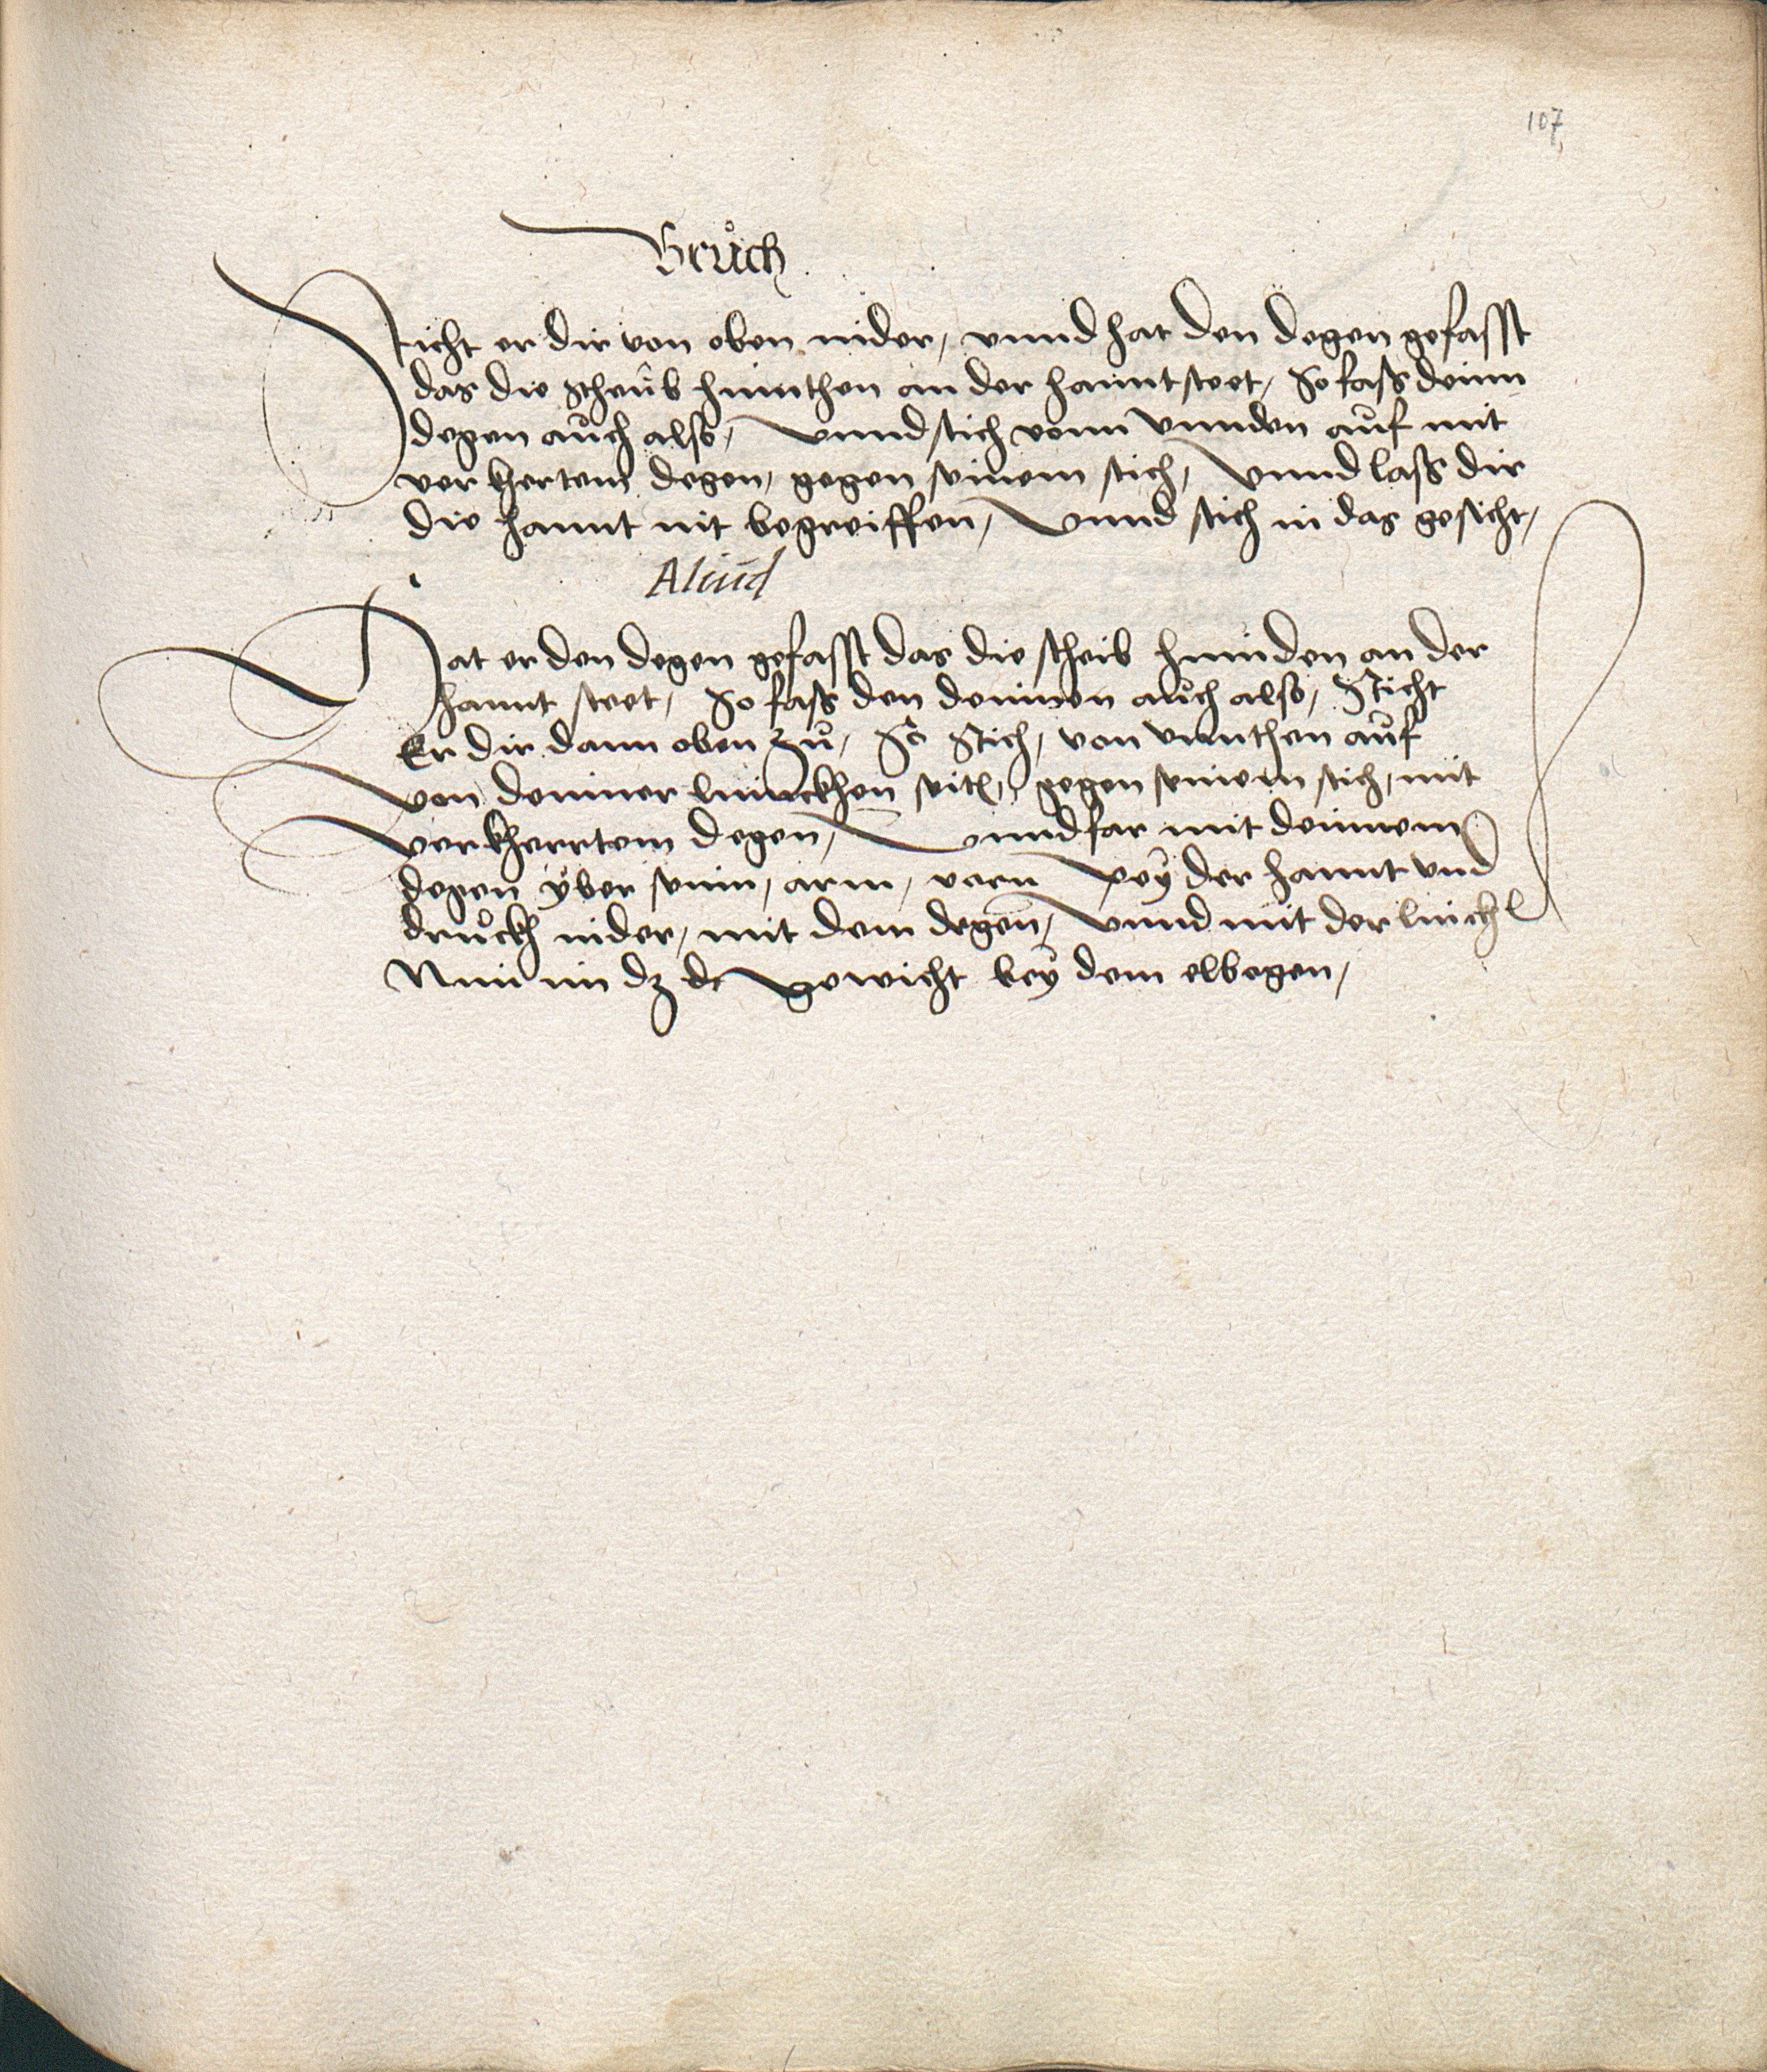 107
Bruͦch
Sticht er dir von oben nider, vnnd hat den degen gefasst
das die scheüb hinnthen an der hannt steet, So fass deinn
degen auͦch also, Vnnd stich vonn vnnden auͦf mit
verkhertem degen, gegen seinem stich, Vnnd lass dir
die hannt nit begreiffen, Vnnd stich in das gesicht,
Aliud
Hat er den degen gefasst das die scheib hinnden an der
hannt steet, So fass den deinnen auͦch also, Sticht
Er dir dann oben Zuͦ, So Stich, von vnnthen auͦf
von deinner linnckhen seitt, gegen seinem stich, mit
verkherrtem degen, Vnnd far mit deinnem
degen yber seinn, arm, vorn bey der hannt vnd
druͦckh nider, mit dem degen, Vnnd mit der linckh
Nim im dz gewicht bey dem elbogen,